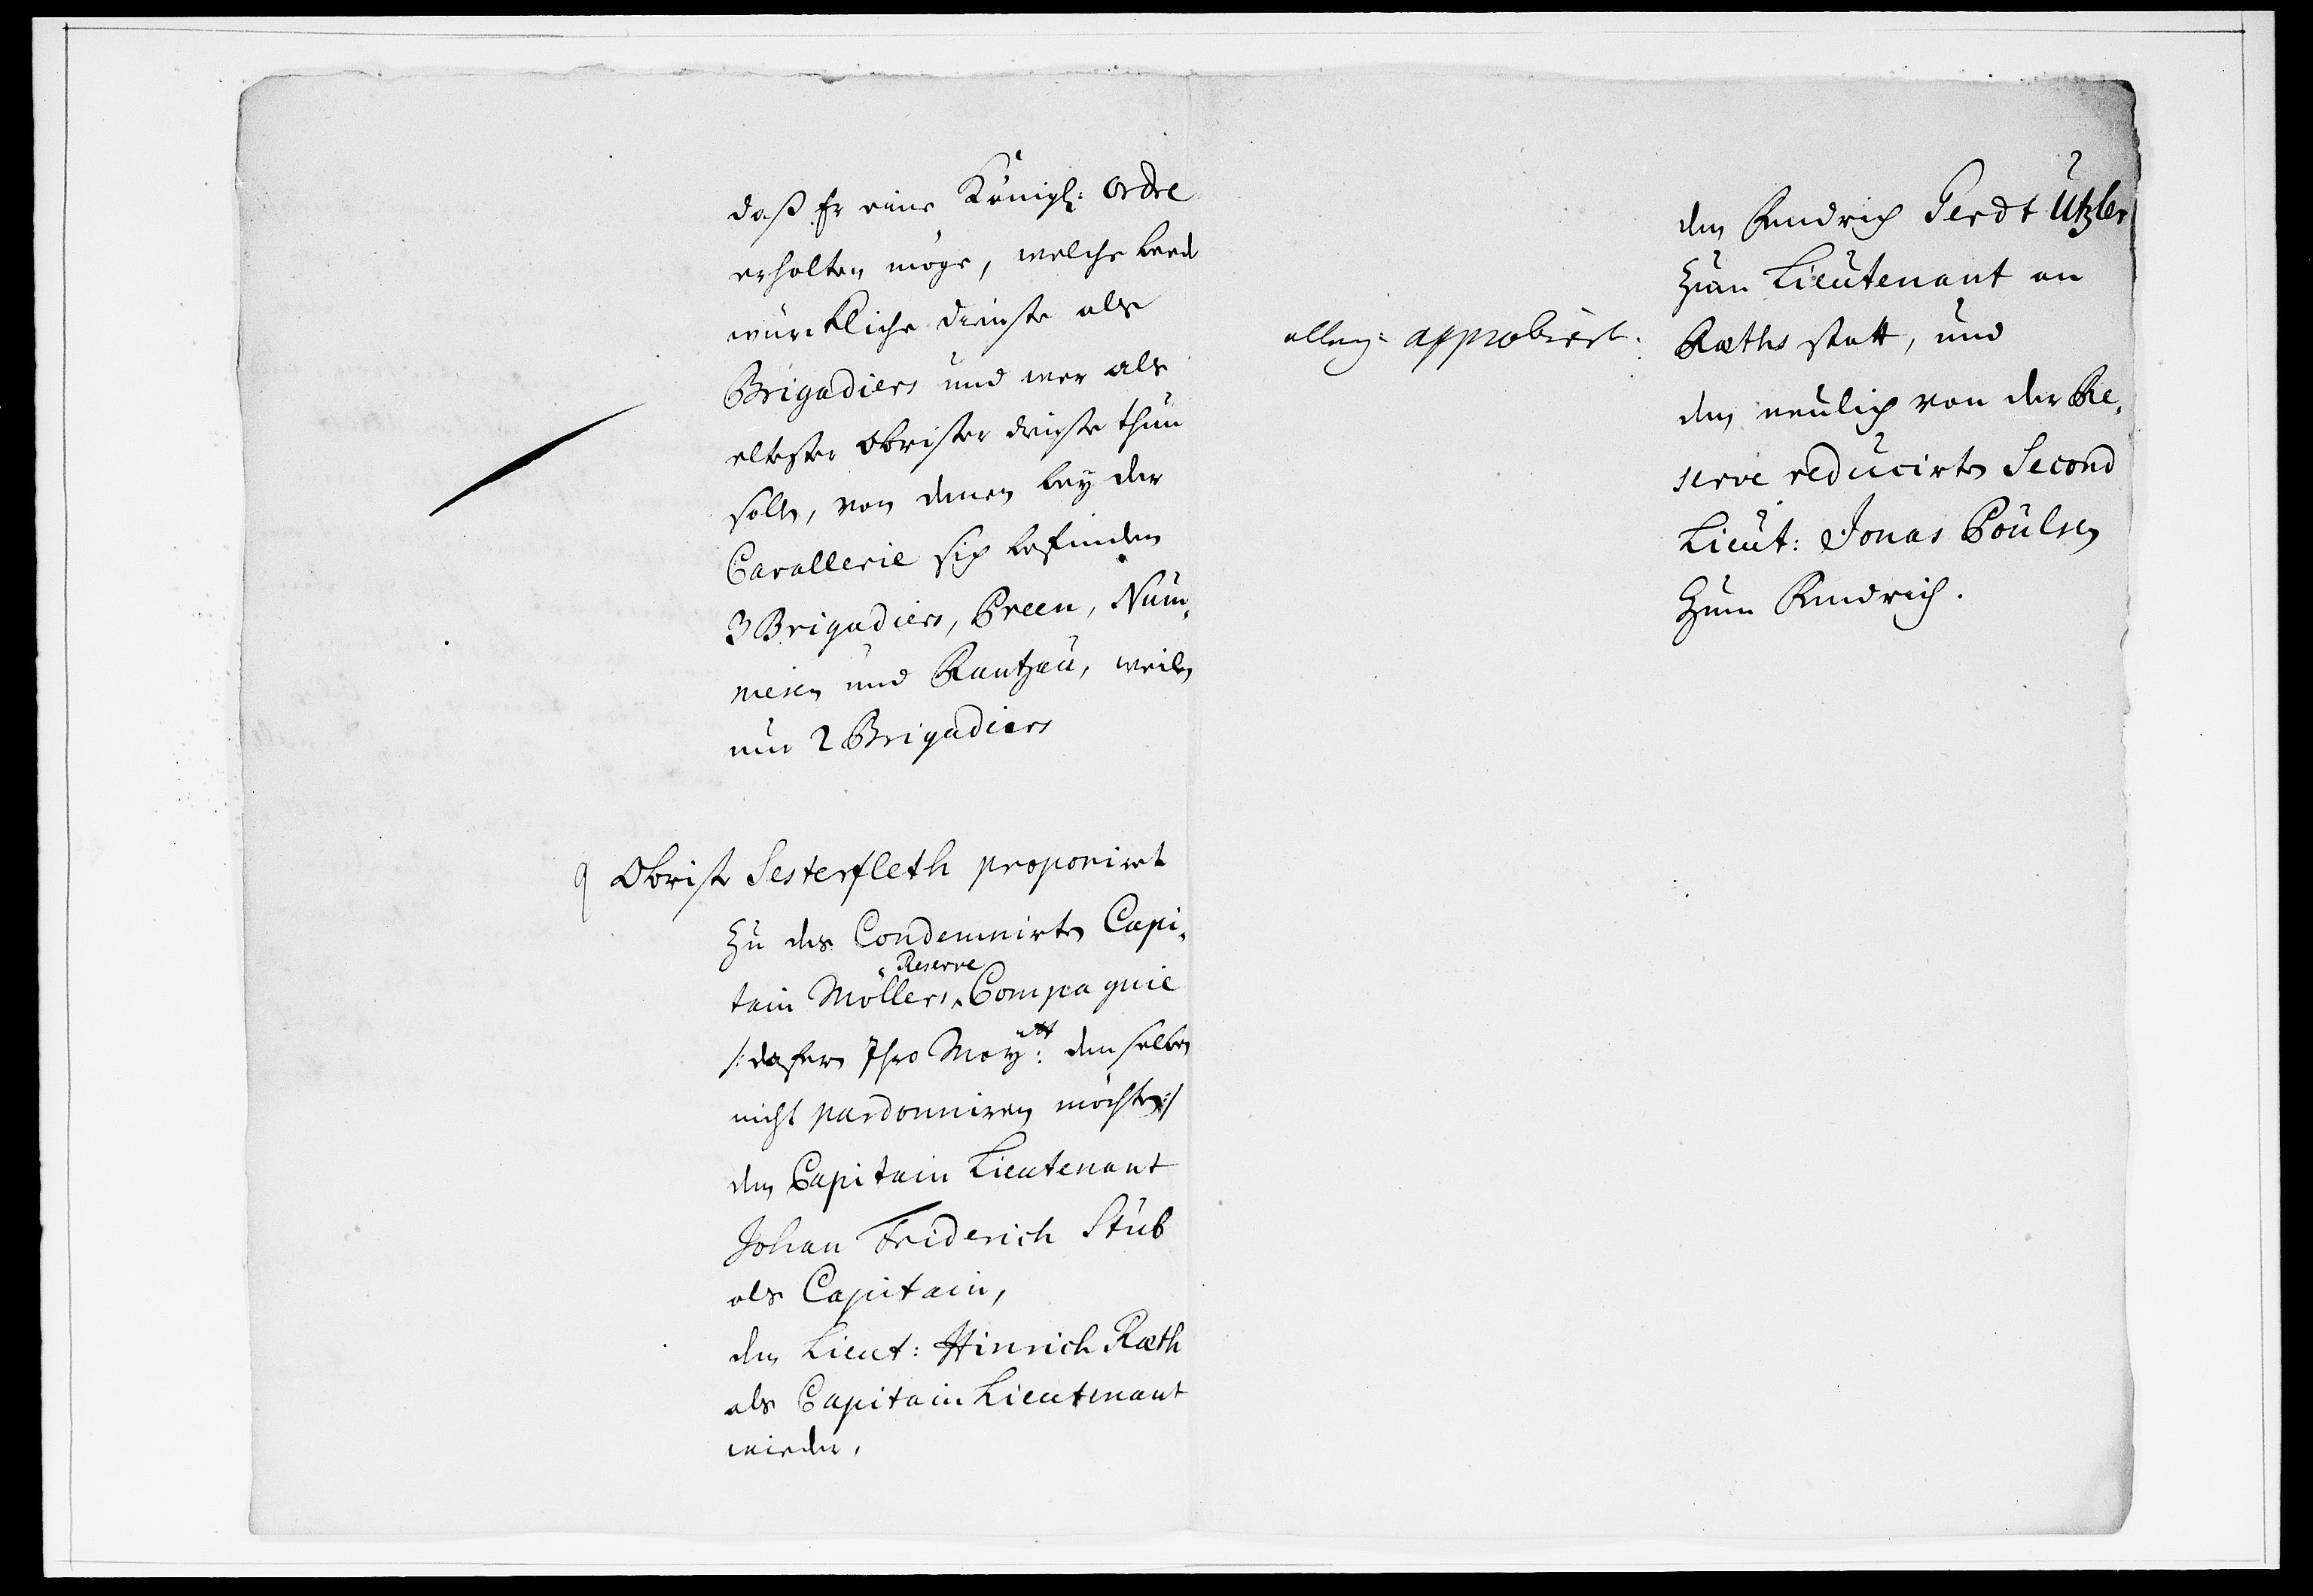 daß Er eine Königl: ordre
erhalten möge, welche
würckliche dienste als
Brigadiers und wer als
eltester Obrister dienste thun
solle, von denen bey der
Cavallerie sich befinden
3 Brigadiers, Preen, Num¬
mesen und Rantzau, weilen
nur 2 Brigadiers
9 Obrist Sesterfleth proponiret
zu des Condemnirten Capi¬
tain Möllers Reserve Compagnie
/: dafern Ihro Maytt: denselben
nicht pardonniren möchten :/
den Capitain Lieutenant
Johan Friderich Stub
als Capitain,
den Lieut: Hinrich Raeth
als Capitain Lieutenant
wieder,
allerg: approbiert.
den Fendrich Gerdt Utzler
zum Lieutenant an
Raeths statt, und
den neulich von der Re¬
serve reducirten Second
Lieut: Jonas Poulsen
zum Fendrich.